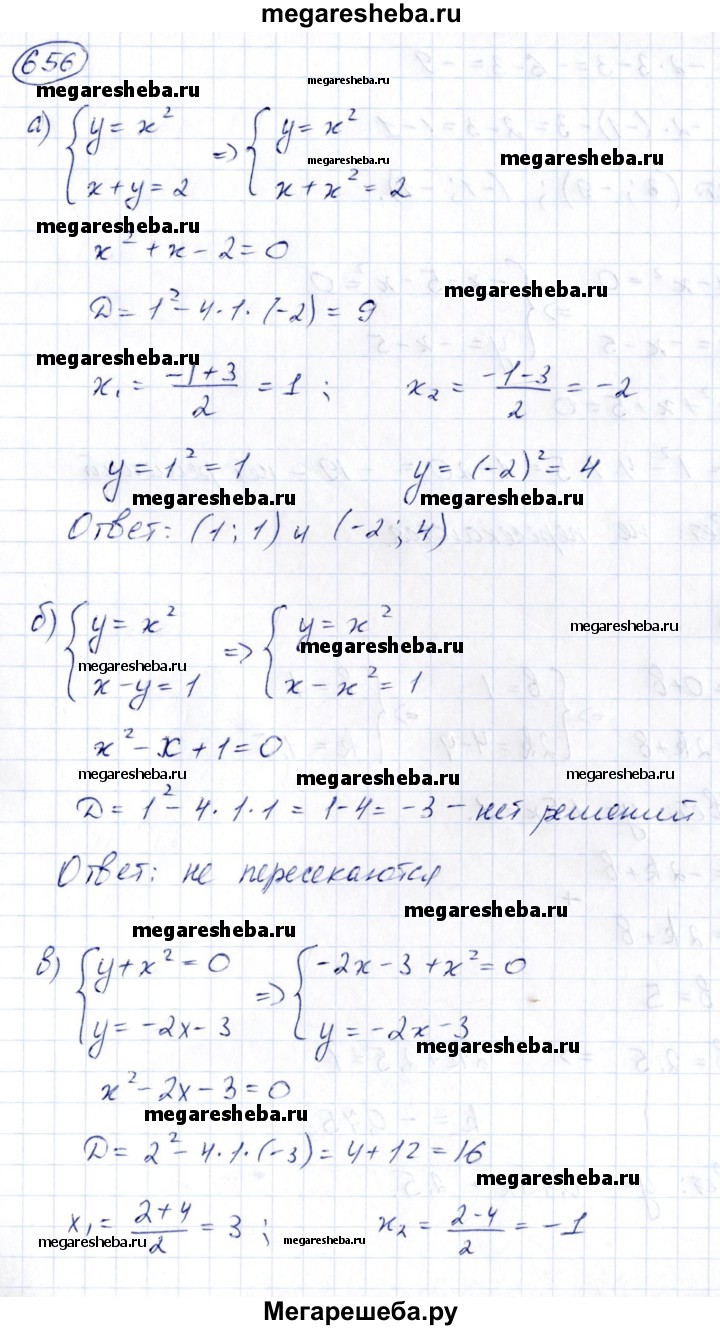 megaresheba.ru
656
megaresheba.ru megaresheba.ru
а) { y = x² => { y = x²
megaresheba.ru megaresheba.ru
x + y = 2 x + x² = 2
megaresheba.ru
x² + x - 2 = 0
megaresheba.ru
D = 1² - 4·1·(-2) = 9
megaresheba.ru
x₁ = (-1+3)/2 = 1 ; x₂ = (-1-3)/2 = -2
y = 1² = 1 y = (-2)² = 4
megaresheba.ru megaresheba.ru
Ответ: (1; 1) и (-2; 4)
б) { y = x² => { y = x²
megaresheba.ru
megaresheba.ru megaresheba.ru
x - y = 1 x - x² = 1
x² - x + 1 = 0
megaresheba.ru megaresheba.ru megaresheba.ru
D = 1² - 4·1·1 = 1-4 = -3 - нет решений
Ответ: не пересекаются
megaresheba.ru
megaresheba.ru
в) { y + x² = 0 => { -2x - 3 + x² = 0
y = -2x - 3 y = -2x - 3
megaresheba.ru
x² - 2x - 3 = 0
megaresheba.ru
D = 2² - 4·1·(-3) = 4 + 12 = 16
megaresheba.ru
x₁ = (2+4)/2 = 3 ; x₂ = (2-4)/2 = -1
megaresheba.ru megaresheba.ru megaresheba.ru
Мегарешеба.ру